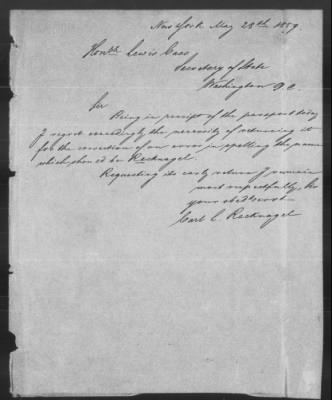 New York May 28th 1859.
Honble Lewis Cass
Secretary of State
Washington D C.
Sir
Being in receipt of the passport today
I regret exceedingly the necessity of returning it
for the correction of an error in spelling the name
which should be Recknagel.
Requesting its early return I remain
most respectfully, Sir
your obedt servt
Carl C. Recknagel